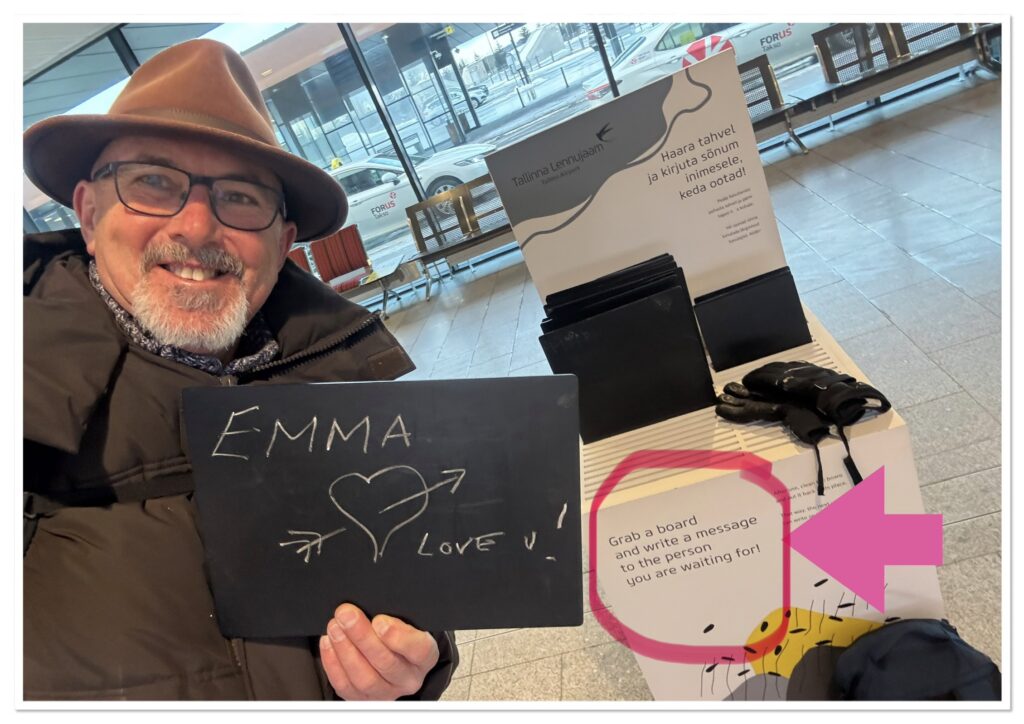 EMMA
LOVE U!
Tallinna Lennujaam
Tallinn Airport
Haara tahvel
ja kirjuta sõnum
inimesele,
keda ootad!
FORUS
Takso
FORUS
Takso
FORUS
Takso
Grab a board
and write a message
to the person
you are waiting for!